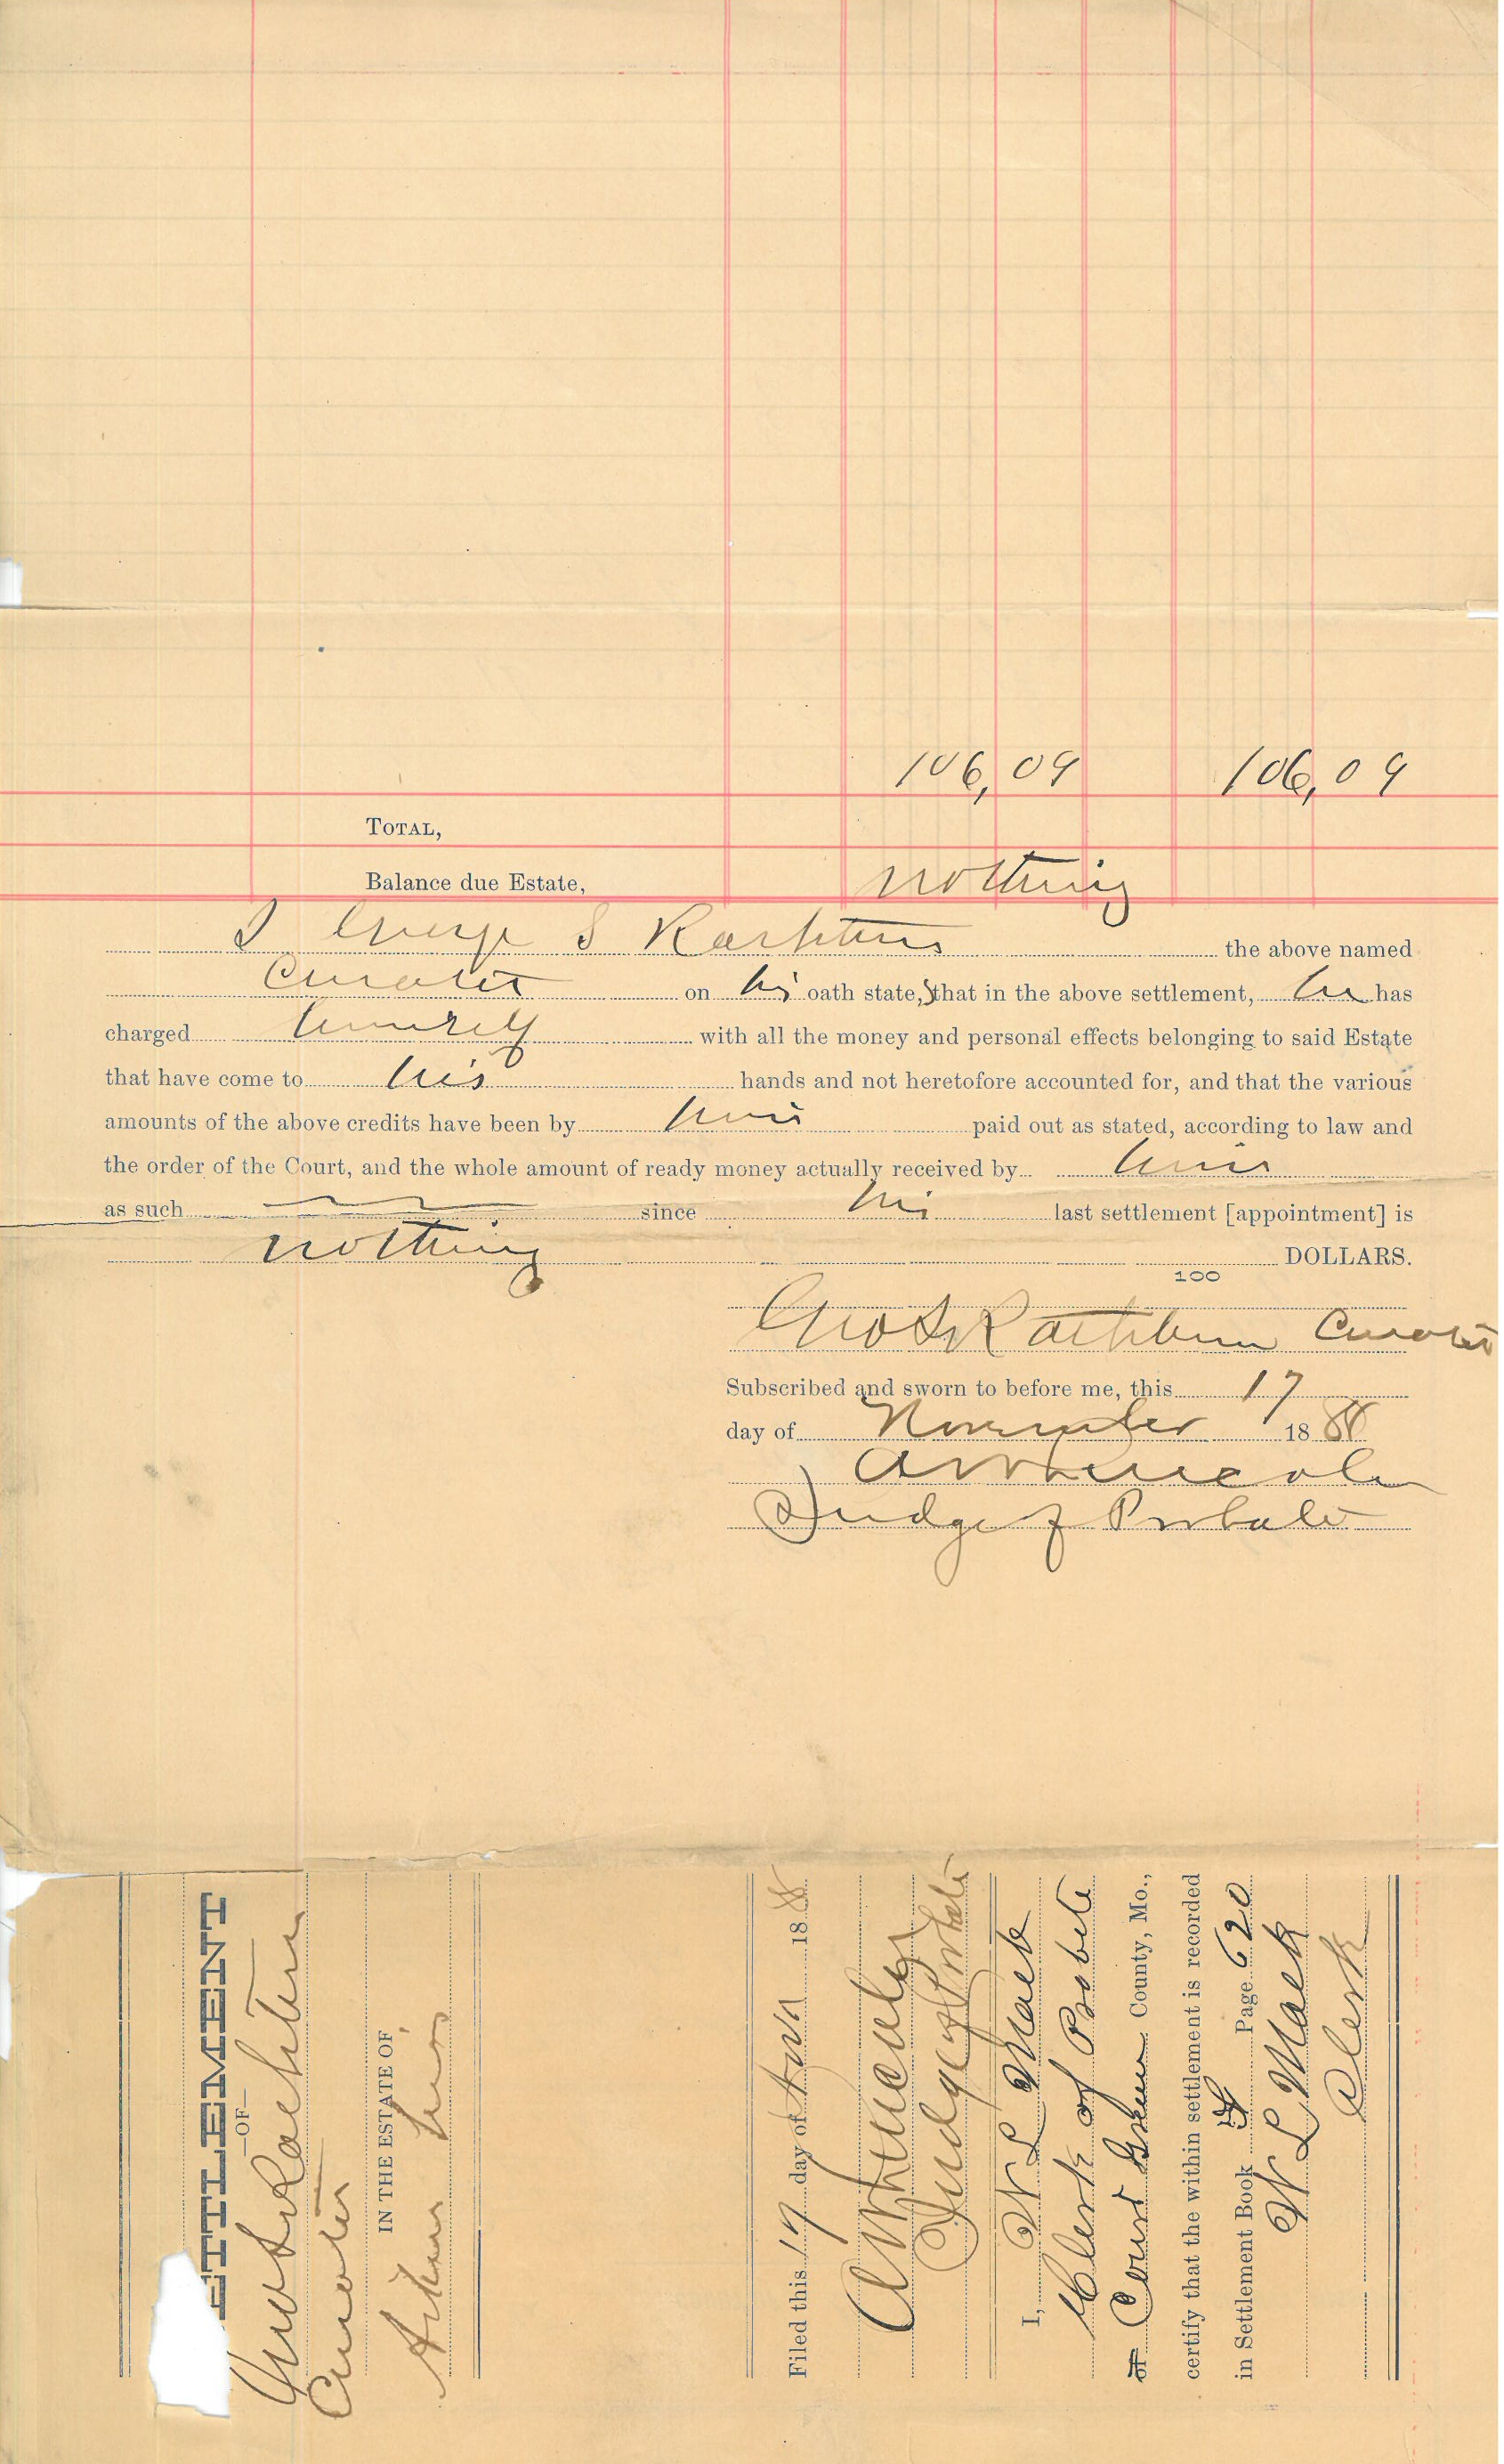 106,09 106,09
TOTAL,
Balance due Estate, nothing
I George S Rathbun the above named
Curator on his oath state, that in the above settlement, he has
charged himself with all the money and personal effects belonging to said Estate
that have come to his hands and not heretofore accounted for, and that the various
amounts of the above credits have been by him paid out as stated, according to law and
the order of the Court, and the whole amount of ready money actually received by him
as such since his last settlement [appointment] is
nothing DOLLARS.
100
Geo S Rathbun Curator
Subscribed and sworn to before me, this 17
day of November 1888
A W Lincoln
Judge of Probate
ETTLEMENT
—OF—
Geo S Rathbun
Curator
IN THE ESTATE OF
Filed this 17 day of Nov 1888
A W Lincoln
Judge of Probate
I, W L Mack
Clerk of Probate
of Court Green County, Mo.,
certify that the within settlement is recorded
in Settlement Book Page 620
W L Mack
Clerk